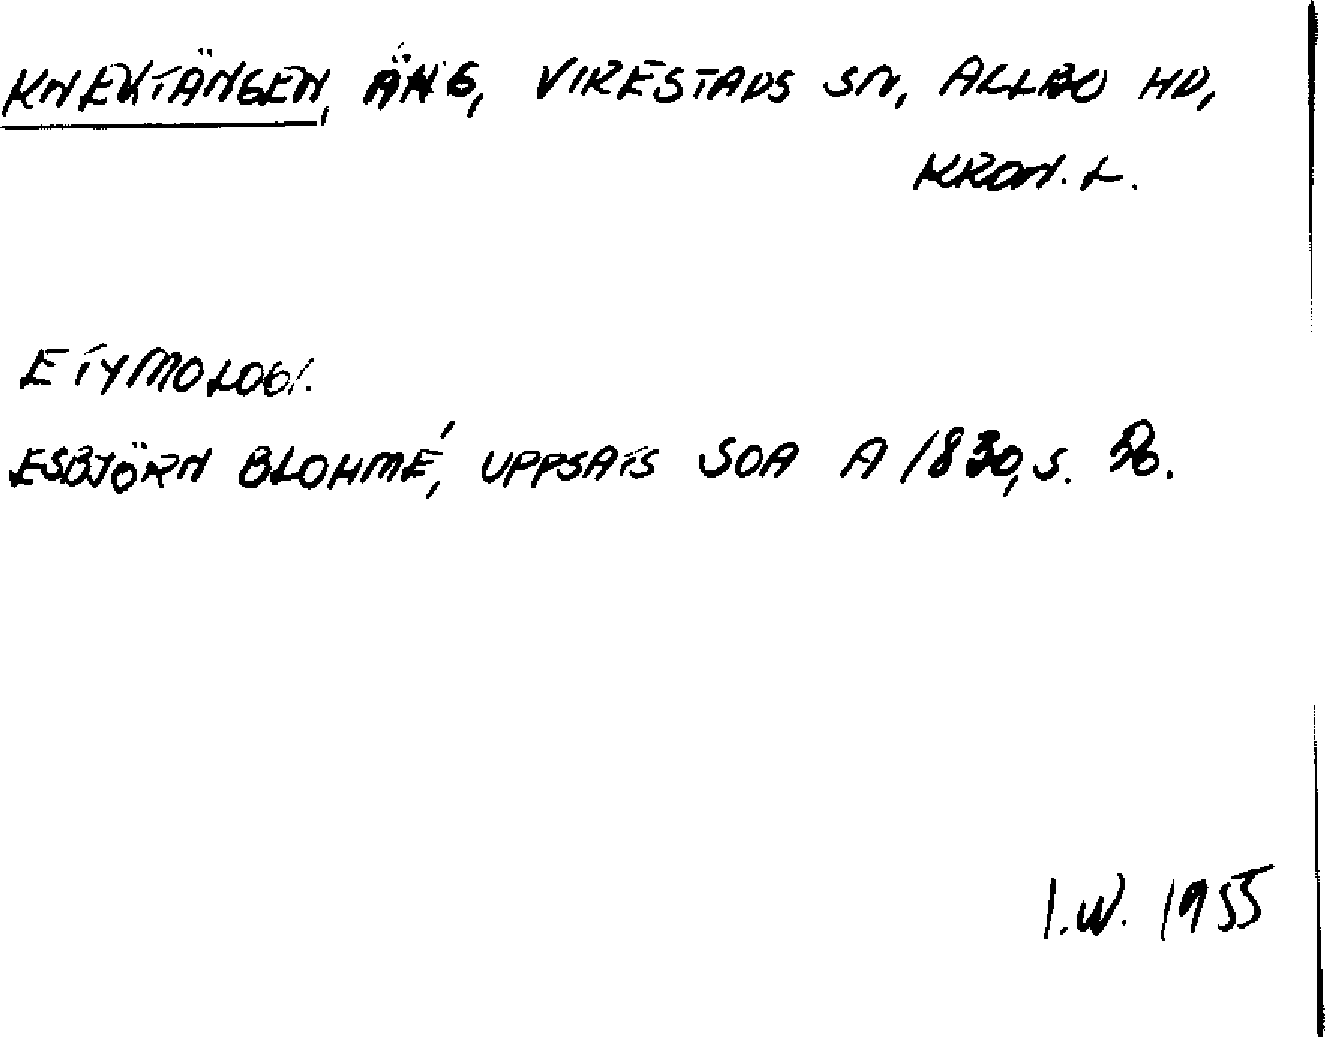 KNEKTÄNGEN, ÄNG, VIRESTADS SN, ALLBO HD,
KRON. L.
ETYMOLOGI.
ESBJÖRN BLOHMÉ, UPPSATS SOA A 1830, s.
I.W. 1955